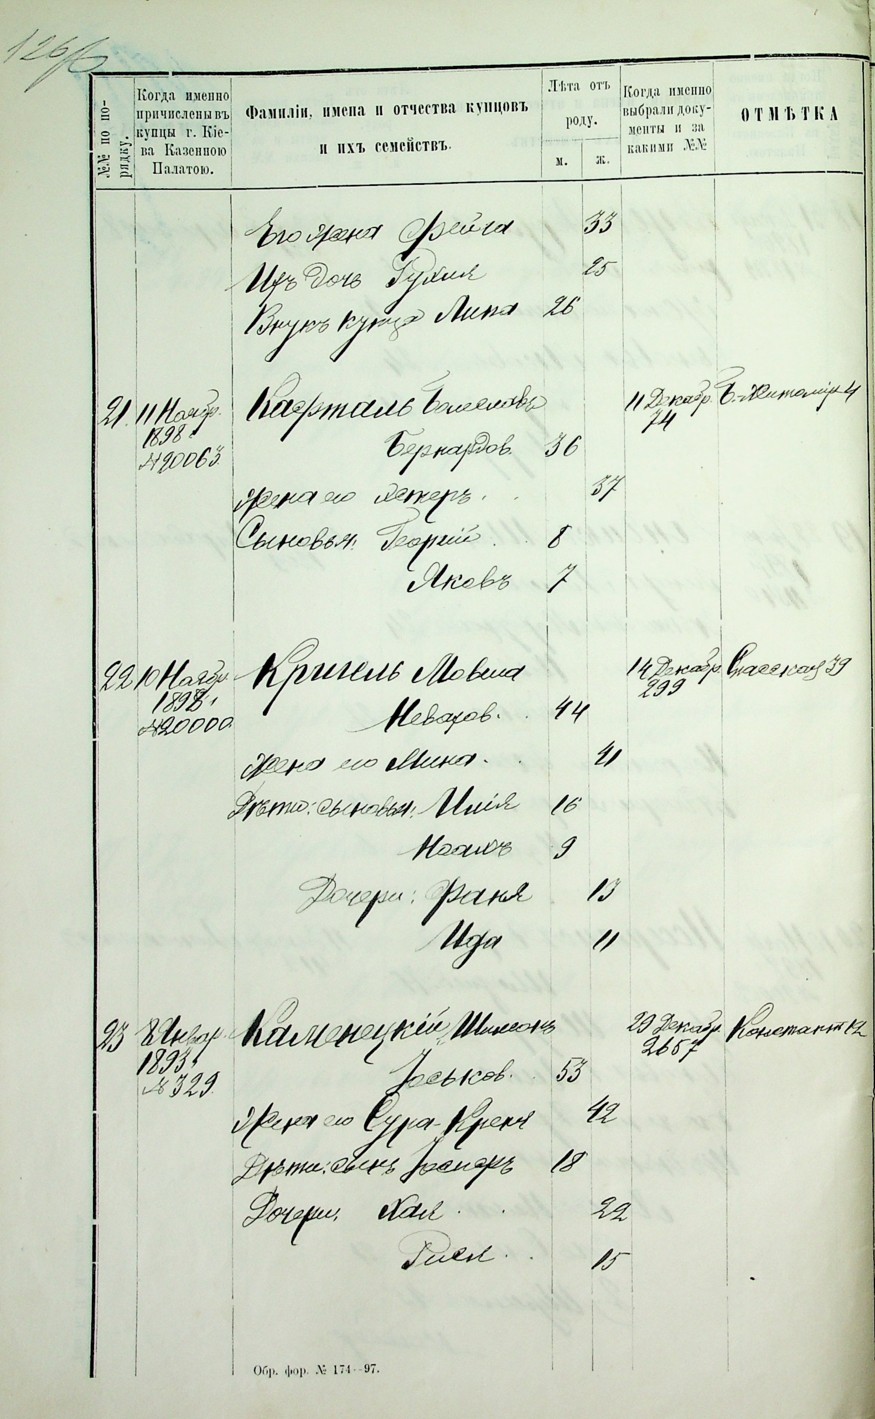 126
№№ по по-
рядку.
Когда именно
причислены въ
купцы г. Кіе-
ва Казенною
Палатою.
Фамиліи, имена и отчества купцовъ
и ихъ семействъ.
Лѣта отъ
роду.
м. ж.
Когда именно
выбрали доку-
менты и за
какими №№
ОТМѢТКА
Его жена Фейга 33
Ихъ дочь Рухля 25
Внукъ купца Липа 26
21. 11 Ноябр. Кафталь Болеславъ 11 Декабр. Б.-Житомір 4
1898 74
№20063 Бернардов. 36
Жена его Эстеръ . . 37
Сыновья: Георгій . . 8
Яковъ 7
22 10 Ноябр. Кригель Мовша 14 Декабр. Спасская 39
1898 299
№20000 Невахов. . 44
Жена его Мина . . 41
Дѣти: сыновья: Илія 16
Ноахъ 9
Дочери: Фаня . 13
Ида 11
23 8 Январ. Каменецкій Шимонъ 29 Декабр. Константин 12
1893 2657
№329 Іоськов. . 53
Жена его Сура-Крейня 42
Дѣти: сынъ Іосифъ 18
Дочери: Хая . . 22
Рися . . 15
Обр. фор. № 174--97.